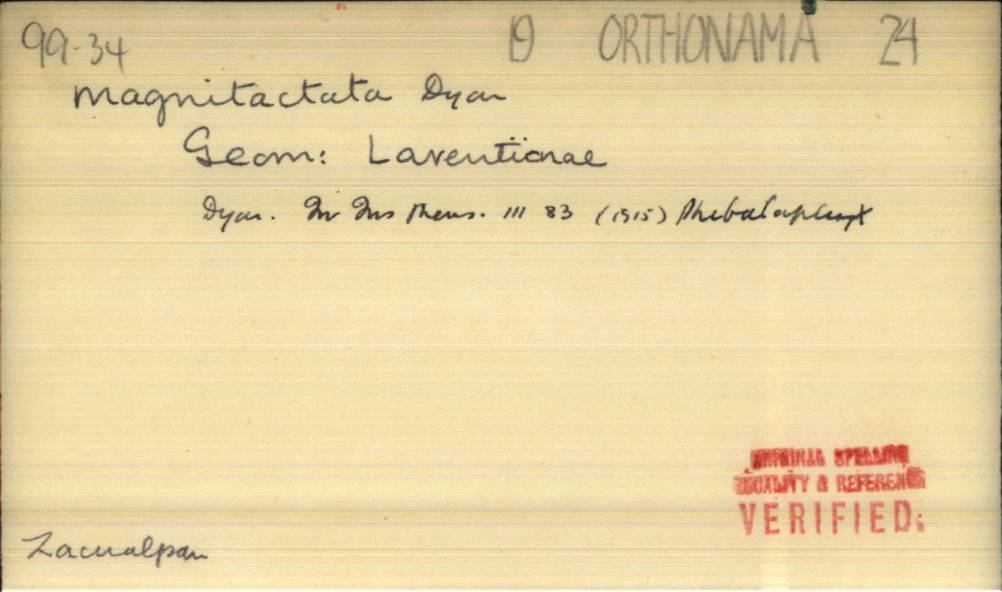 99-34 19 ORTHONAMA 24
magnitactata Dyar
Geom: Larentiinae
Dyar. In Ins Mens. III 83 (1915)
ORIGINAL SPELLING
LOCALITY & REFERENCE
VERIFIED.
Zacualpan